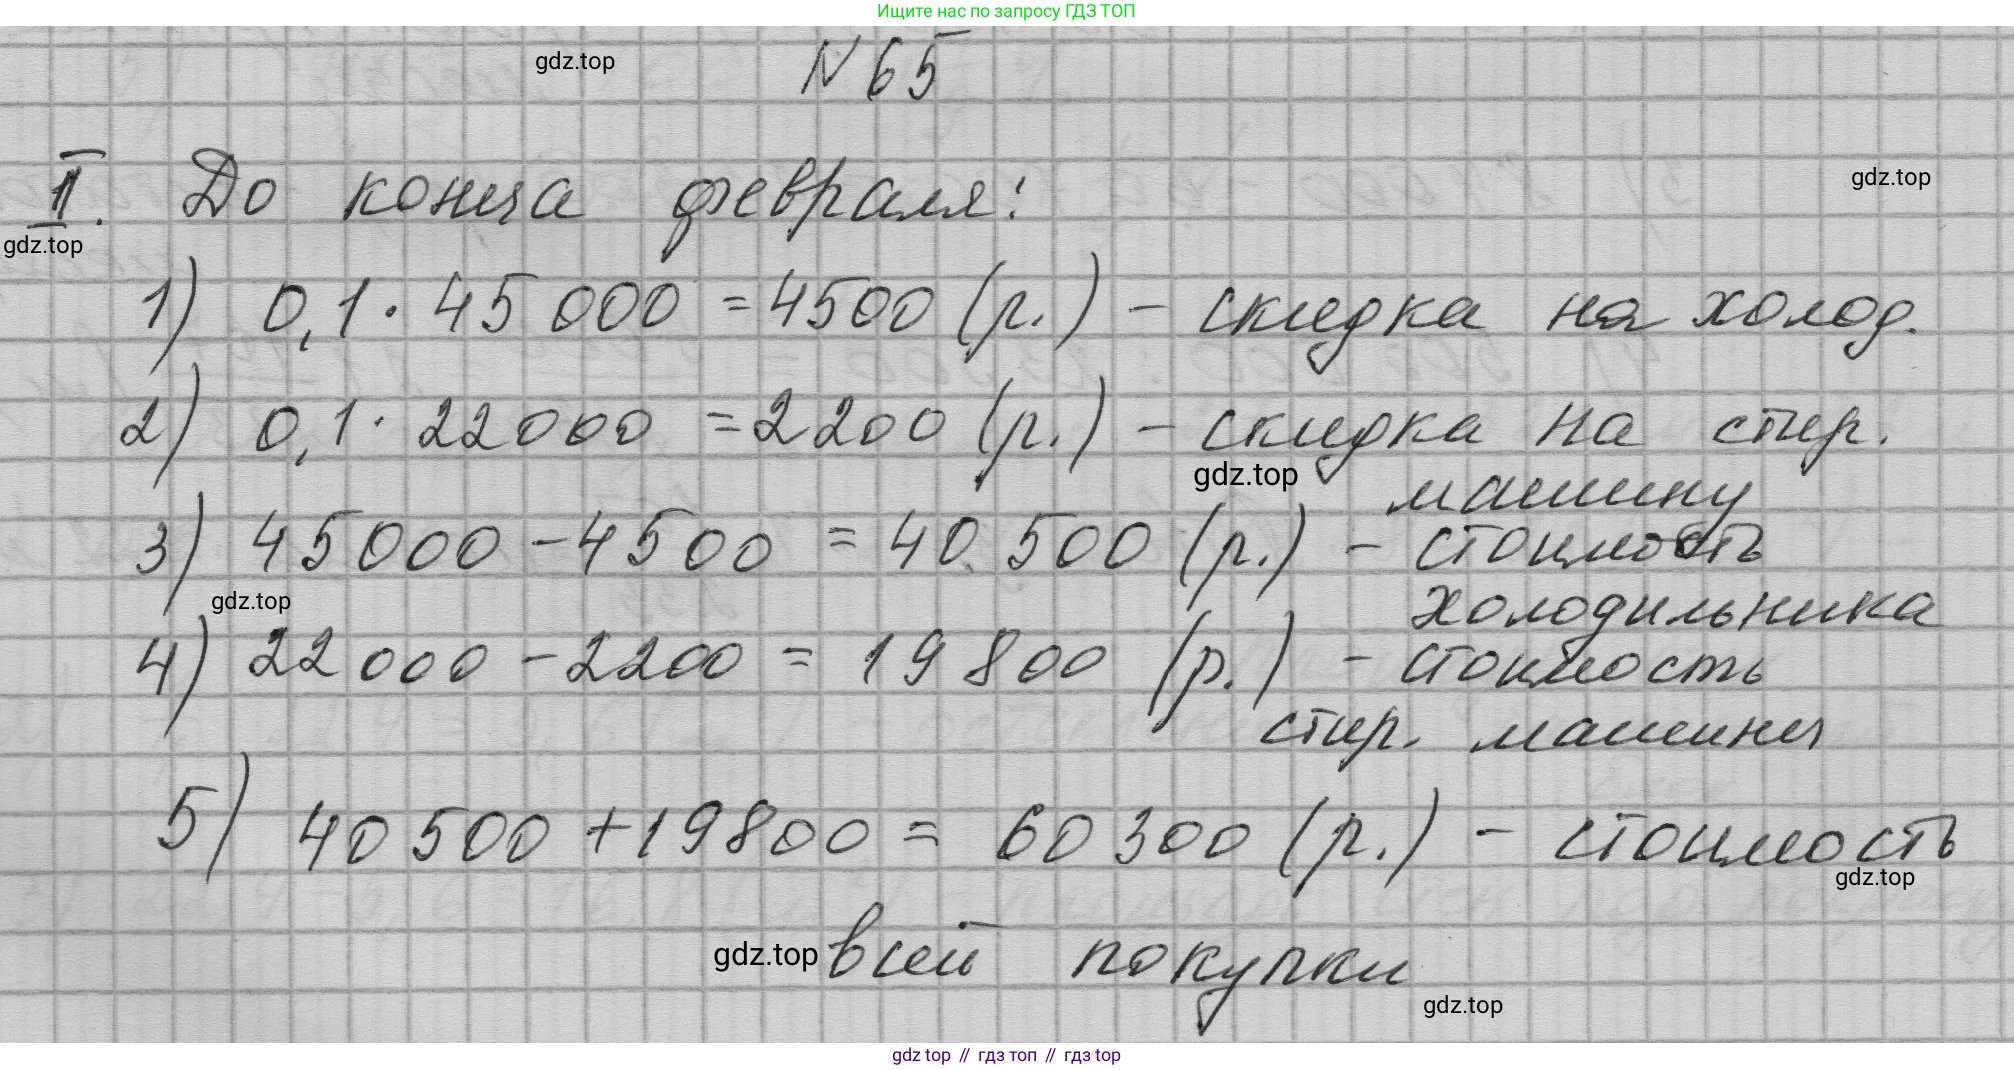 Ищите нас по запросу ГДЗ ТОП
gdz.top
N 65
gdz.top
I. До конца февраля:
gdz.top
1) 0,1 · 45 000 = 4500 (р.) - скидка на холод.
2) 0,1 · 22000 = 2200 (р.) - скидка на стир.
gdz.top
машину
3) 45000 - 4500 = 40 500 (р.) - стоимость
gdz.top
холодильника
4) 22 000 - 2200 = 19 800 (р.) - стоимость
стир. машины
5) 40 500 + 19800 = 60 300 (р.) - стоимость
gdz.top
gdz.top
всей покупки
gdz.top
gdz top // гдз топ // гдз top